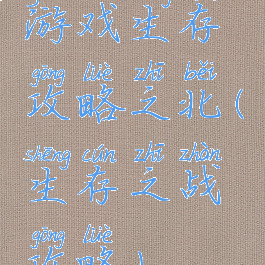 游戏生存
gōng lüè zhī běi
攻略之北(
shēng cún zhī zhàn
生存之战
gōng lüè
攻略)